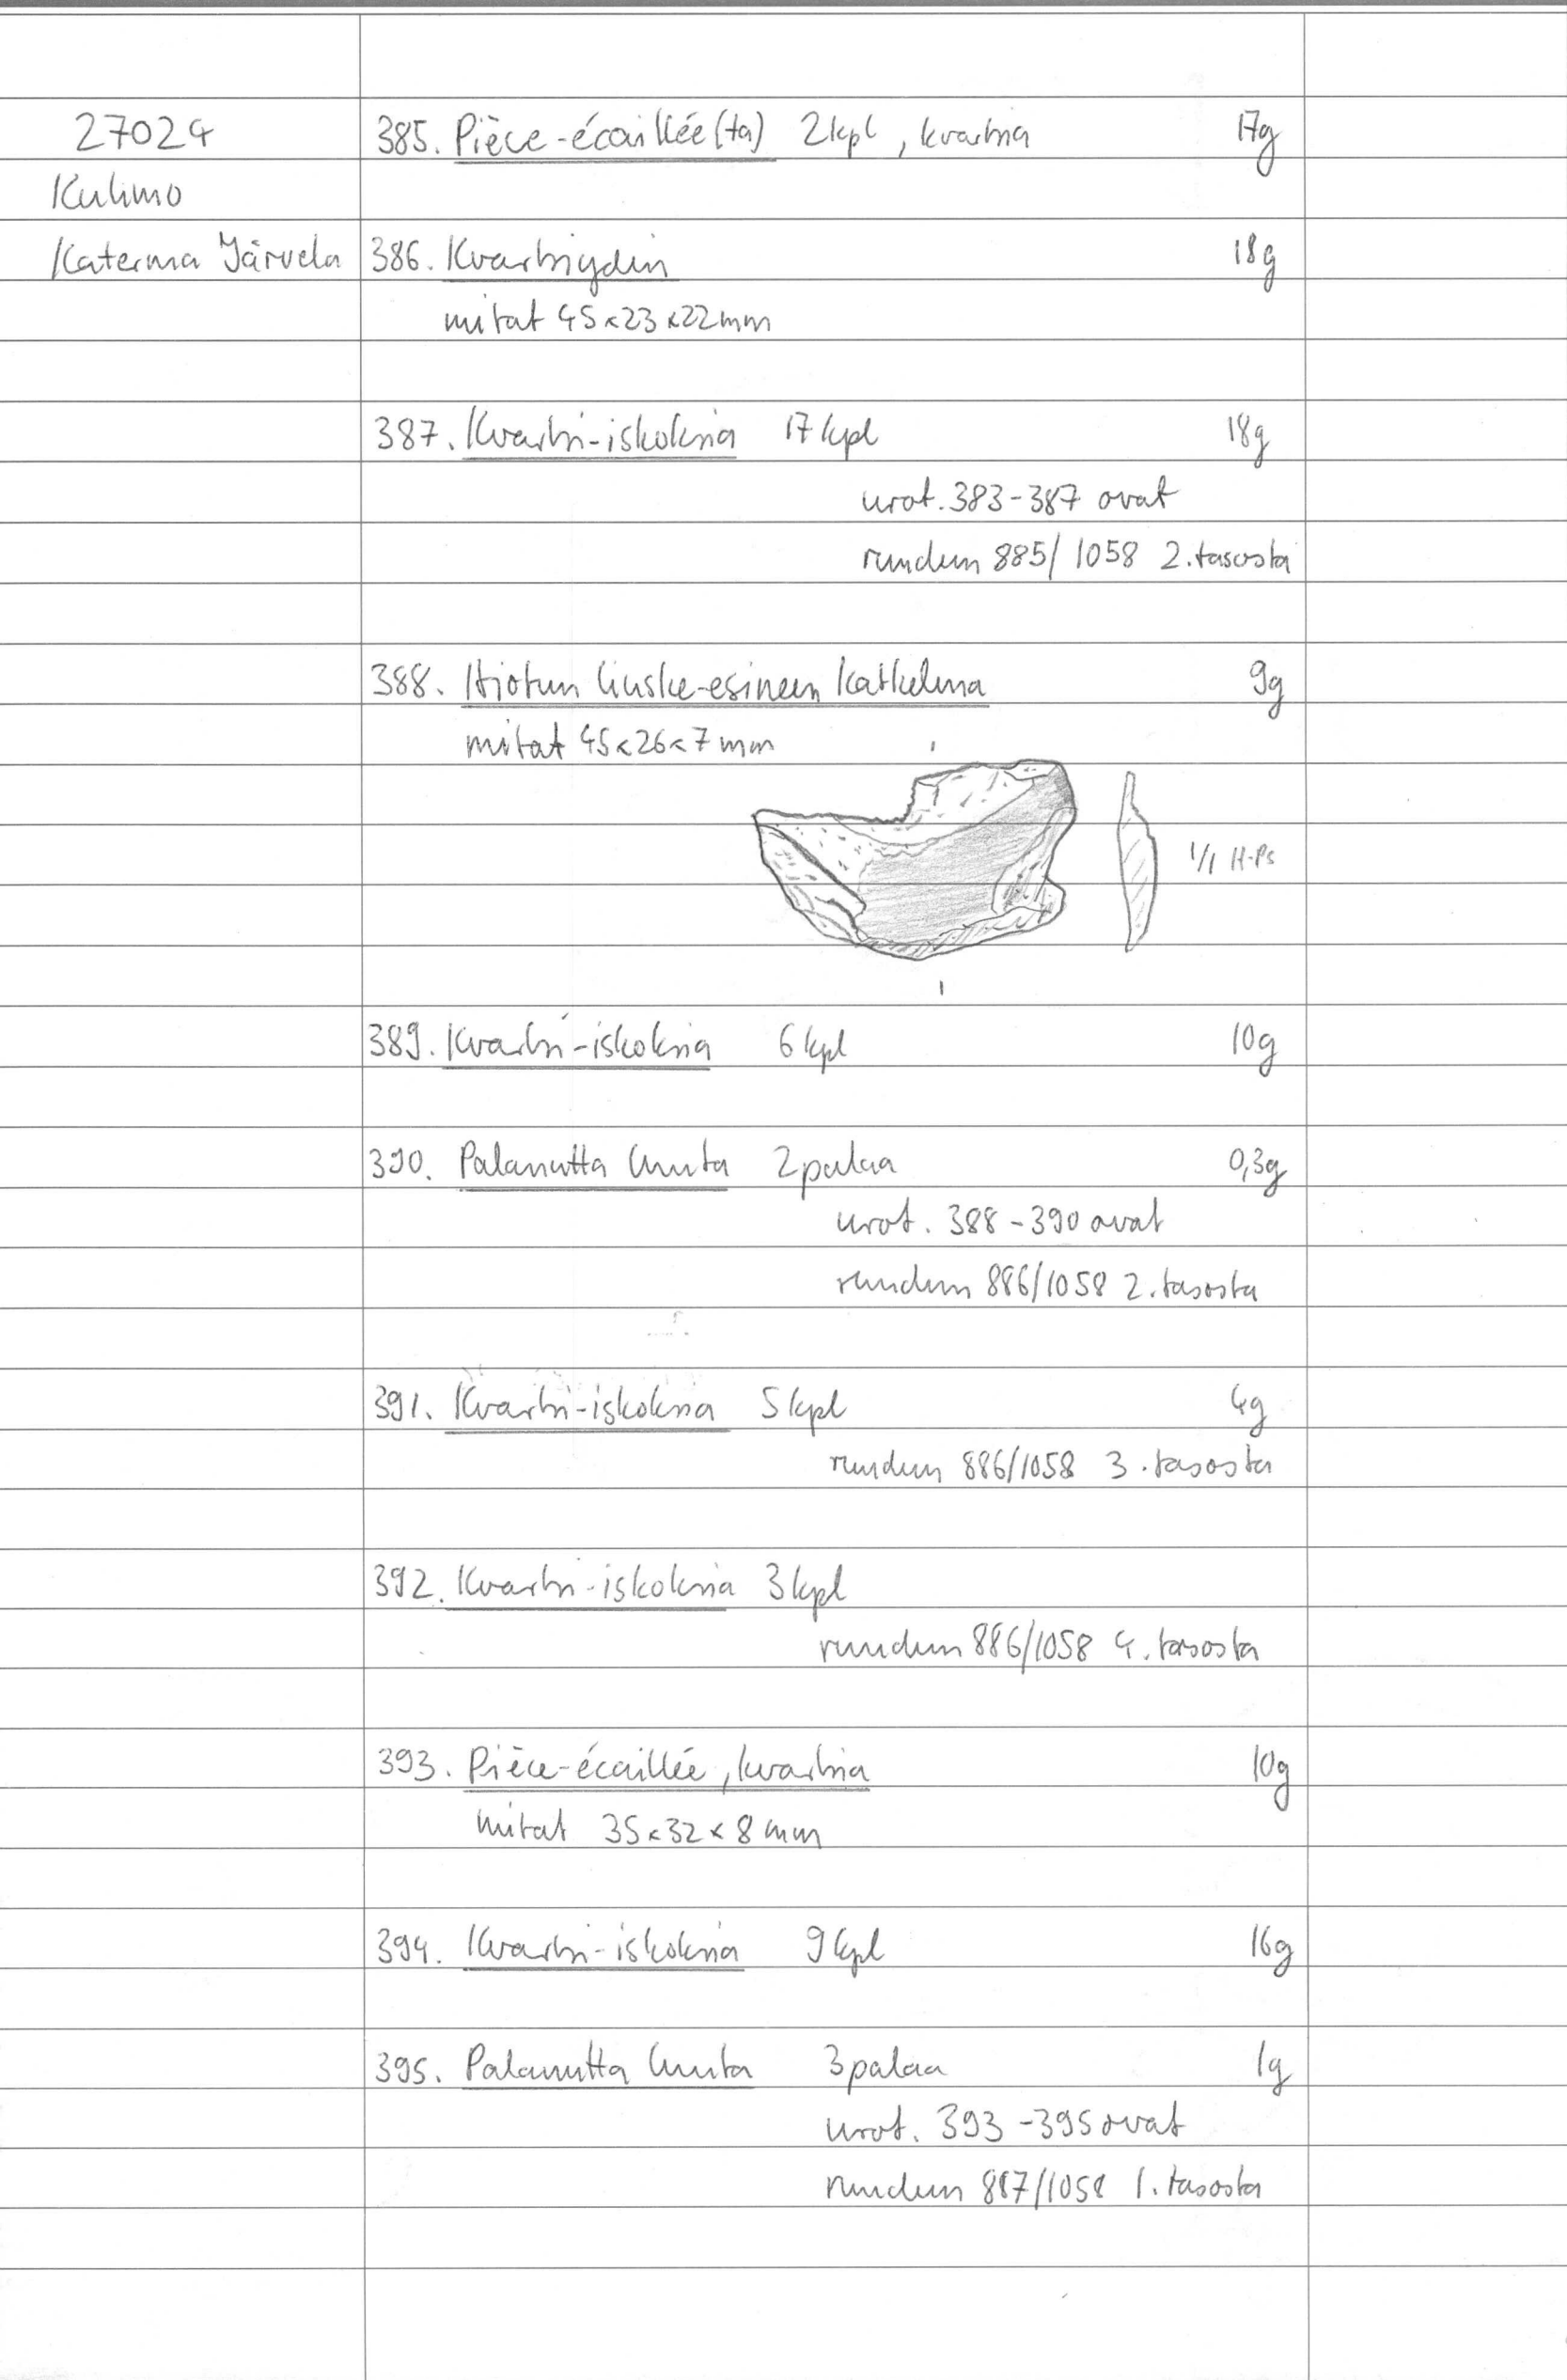 27024
Kuhmo
Katerma Järvelä
385. Pièce-écaillée(tä) 2kpl, kvartsia 17g
386. Kvartsiydin 18g
mitat 45x23x22mm
387. Kvartsi-iskoksia 17 kpl 18g
nrot. 383-387 ovat
ruudun 885/1058 2.tasosta
388. Hiotun liuske-esineen katkelma 9g
mitat 45x26x7mm
1/1 H-Ps
389. Kvartsi-iskoksia 6 kpl 10g
390. Palanutta luuta 2 palaa 0,3g
nrot. 388-390 ovat
ruudun 886/1058 2.tasosta
391. Kvartsi-iskoksia 5 kpl 4g
ruudun 886/1058 3.tasosta
392. Kvartsi-iskoksia 3 kpl
ruudun 886/1058 4.tasosta
393. Pièce-écaillée, kvartsia 10g
mitat 35x32x8mm
394. Kvartsi-iskoksia 9 kpl 16g
395. Palanutta luuta 3 palaa 1g
nrot. 393-395 ovat
ruudun 887/1058 1.tasosta